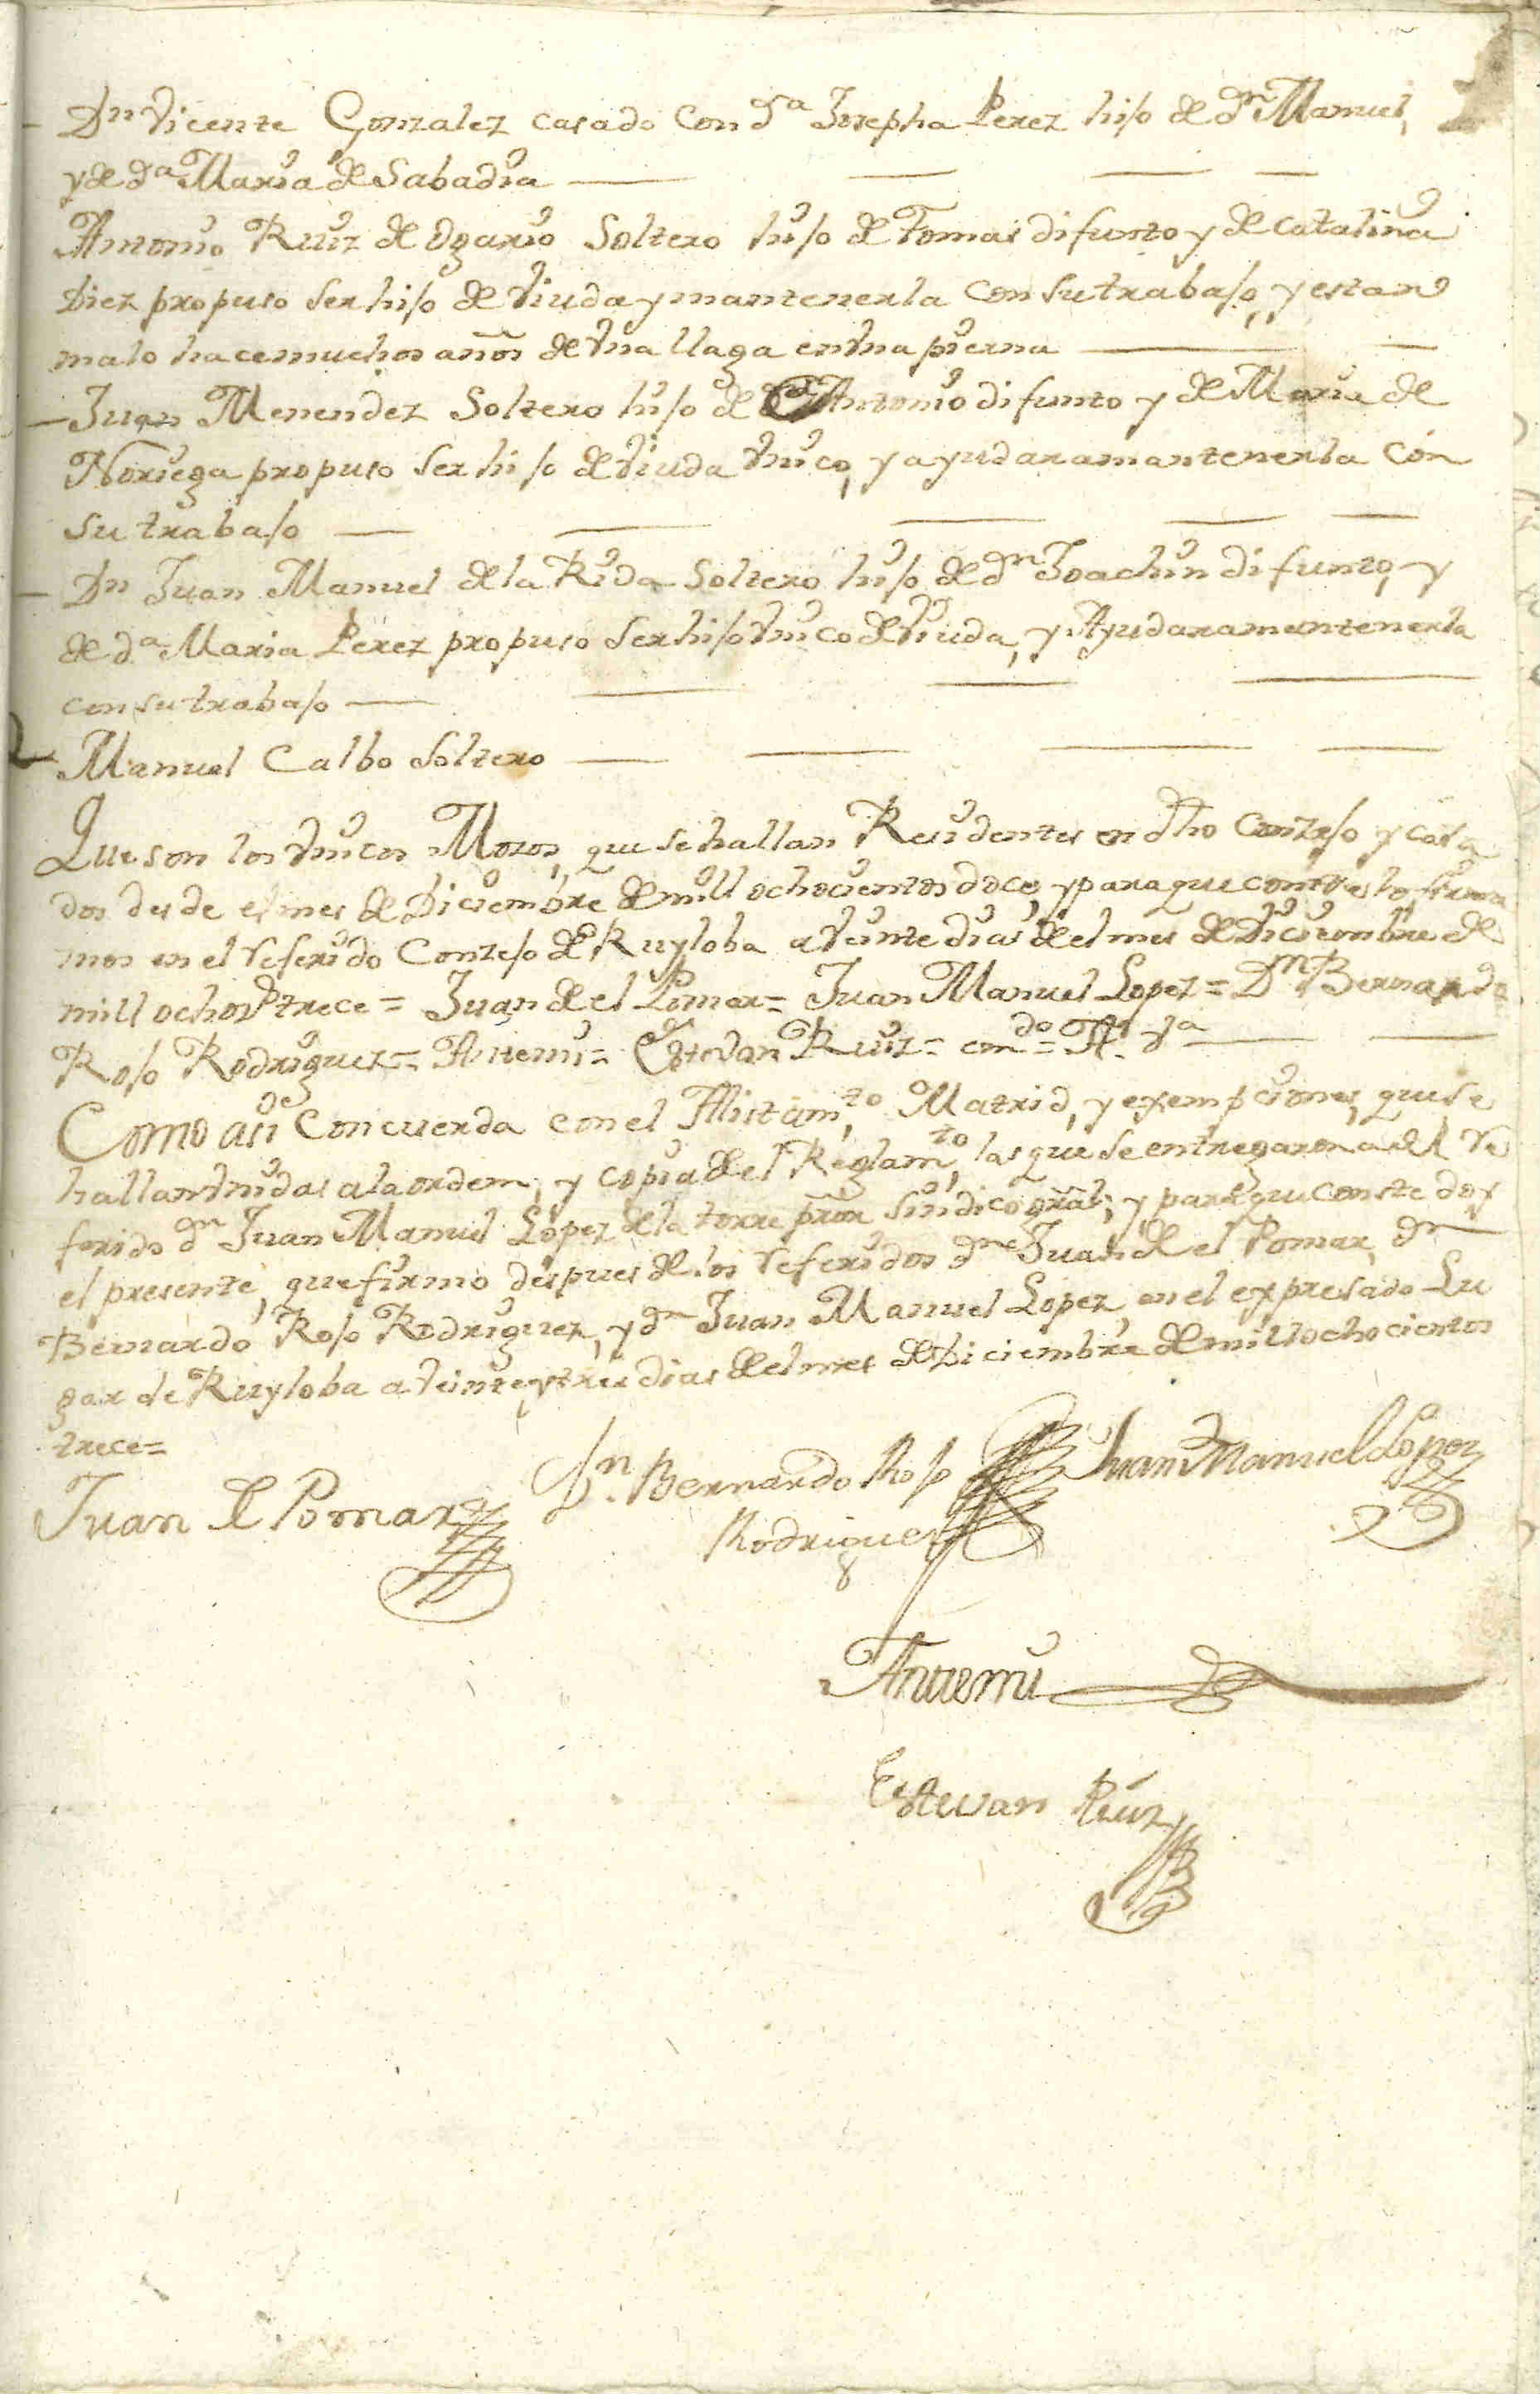 - Dn Vicente Gonzalez casado con da Josepha Perez hijo de dn Manuel,
y de da Maria de Sabadia
Antonio Ruiz de Ogario Soltero hijo de Tomas difunto y de Catalina
Diez propuso ser hijo de Viuda y mantenerla con su trabajo, y estar
malo hace muchos años de Vna llaga en Vna pierna
- Juan Menendez Soltero hijo de Antonio difunto y de Maria de
Noriega propuso ser hijo de Viuda Vnico, y ayudar a mantenerla con
su trabajo
- Dn Juan Manuel de la Rida Soltero hijo de dn Joachin difunto, y
de da Maria Perez propuso ser hijo Vnico de Viuda, y Ayudar a mantenerla
con su trabajo
Manuel Calbo Soltero
Que son los Vnicos Mozos, que se hallan Residentes en dho Conzejo y casa
dos desde el mes de Diciembre de mill ochocientos doce, y para que conste lo firma
mos en el referido Conzejo de Ruyloba a Veinte dias del mes de Diciembre de
mill ochos trece = Juan de el Pomar = Juan Manuel Lopez = Dn Bernardo
Rojo Rodriguez = Antemi = Estevan Ruiz = emdo =
Como asi Concuerda con el Alistamto, Matrid, y exempciones, que se
hallan Vnidas a la orden, y copia de el Reglamto, las que se entregaron a el re
ferido dn Juan Manuel Lopez de la torre pror sindico gral; y para que conste doy
el presente, que firmo despues de los referidos dn Juan de el Pomar, dn
Bernardo Rojo Rodriguez, y dn Juan Manuel Lopez, en el expresado Lu
gar de Ruyloba a Veinte y tres dias del mes de Diciembre de mill ochocientos
trece =
Juan de Pomar Dn. Bernardo Rojo Juan Manuel Lopez
Rodriguez
Antemi
Estevan Ruiz